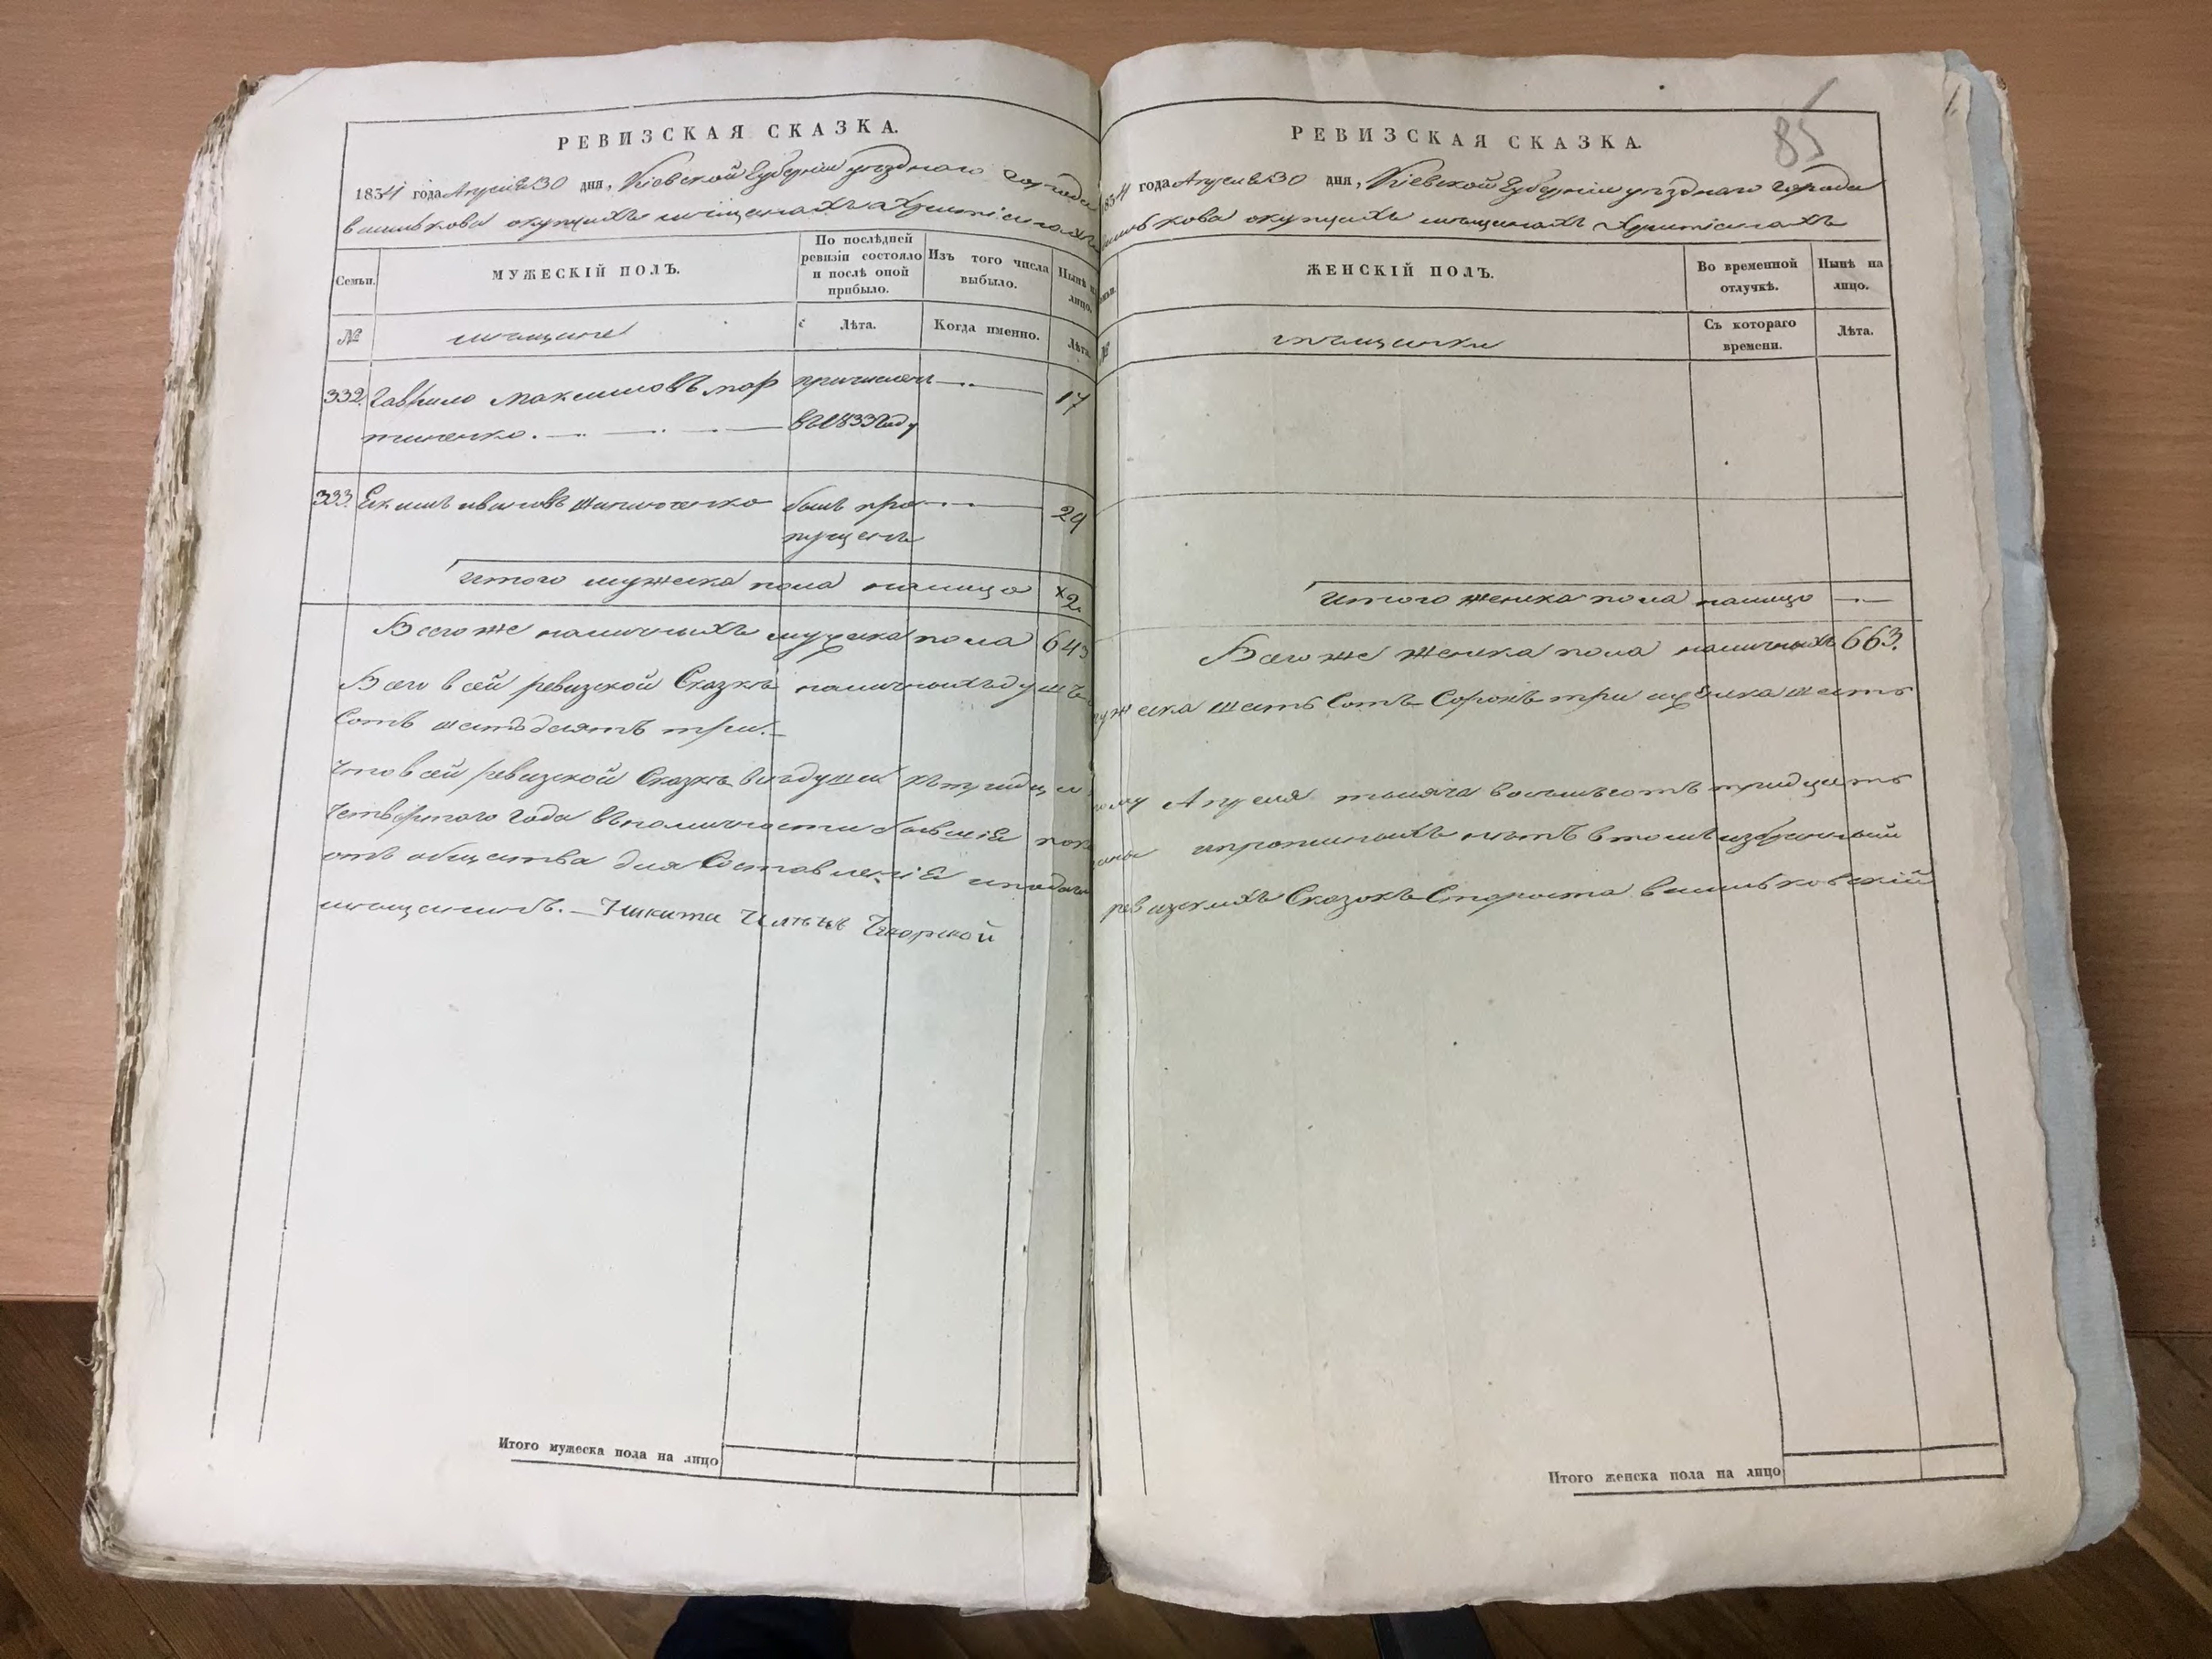 РЕВИЗСКАЯ СКАЗКА.
1834 года Апреля 30 дня, Кіевской Губерніи уѣзднаго города
василькова окупцахъ мѣщанахъ Христіянахъ
Семьи.
МУЖЕСКІЙ ПОЛЪ.
По послѣдней ревизіи состояло и послѣ оной прибыло.
Изъ того числа выбыло.
Нынѣ на лицо.
№
мѣщане
Лѣта.
Когда именно.
Лѣта.
332. Гаврило Максимовъ мар причисленъ 17
тиненко. въ 1833 году
333. Екимъ ивановъ былъ про 29
пущенъ
итого мужеска пола налицо 2.
Всего же наличныхъ мужска пола 643
Всего в сей ревизской Сказкѣ наличныхъ душъ
Сотъ шестьдесятъ три.
Что в сей ревизской Сказкѣ всѣ души кътридца
четвертого года въналичности бывшіе пок
отъ общества для Составленіе иподачи
мѣщанинъ. Никита
Итого мужеска пола на лицо
85
РЕВИЗСКАЯ СКАЗКА.
1834 года Апреля 30 дня, Кіевской Губерніи уѣзднаго города
василькова окупцахъ мѣщанахъ Христіянахъ
ЖЕНСКІЙ ПОЛЪ.
Во временной отлучкѣ.
Нынѣ на лицо.
№
мѣщанки
Съ котораго времени.
Лѣта.
Итого женска пола налицо
Всего же Женска пола наличныхъ 663.
мужеска шесть Сотъ Сорокъ три иженска шесть
тому Апреля тысяча восемьсотъ тридцать
заны ипрописныхъ нѣтъ в томъ избранный
ревизскихъ Сказокъ Староста васильковскій
Итого женска пола на лицо